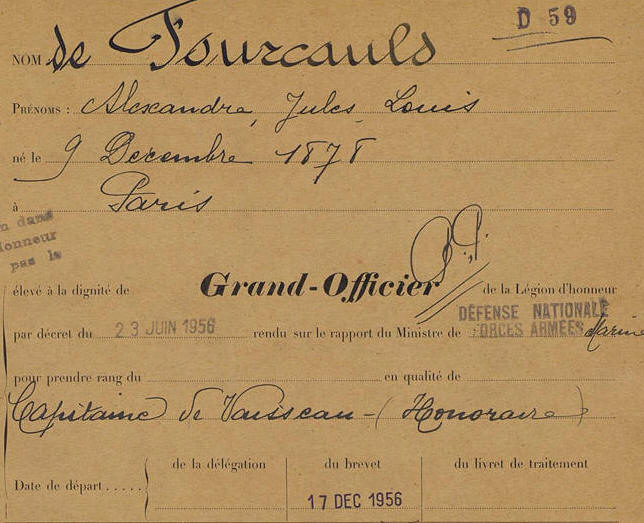 D 59
NOM de Fourcauld
PRÉNOMS : Alexandre, Jules Louis
né le 9 Decembre 1878
à Paris
n dans
onneur
pas le
élevé à la dignité de Grand-Officier de la Légion d'honneur
par décret du 23 JUIN 1956 rendu sur le rapport du Ministre de DÉFENSE NATIONALE
FORCES ARMÉES Marine
pour prendre rang du en qualité de
Capitaine de Vaisseau - (Honoraire)
de la délégation du brevet du livret de traitement
Date de départ.....
17 DEC 1956